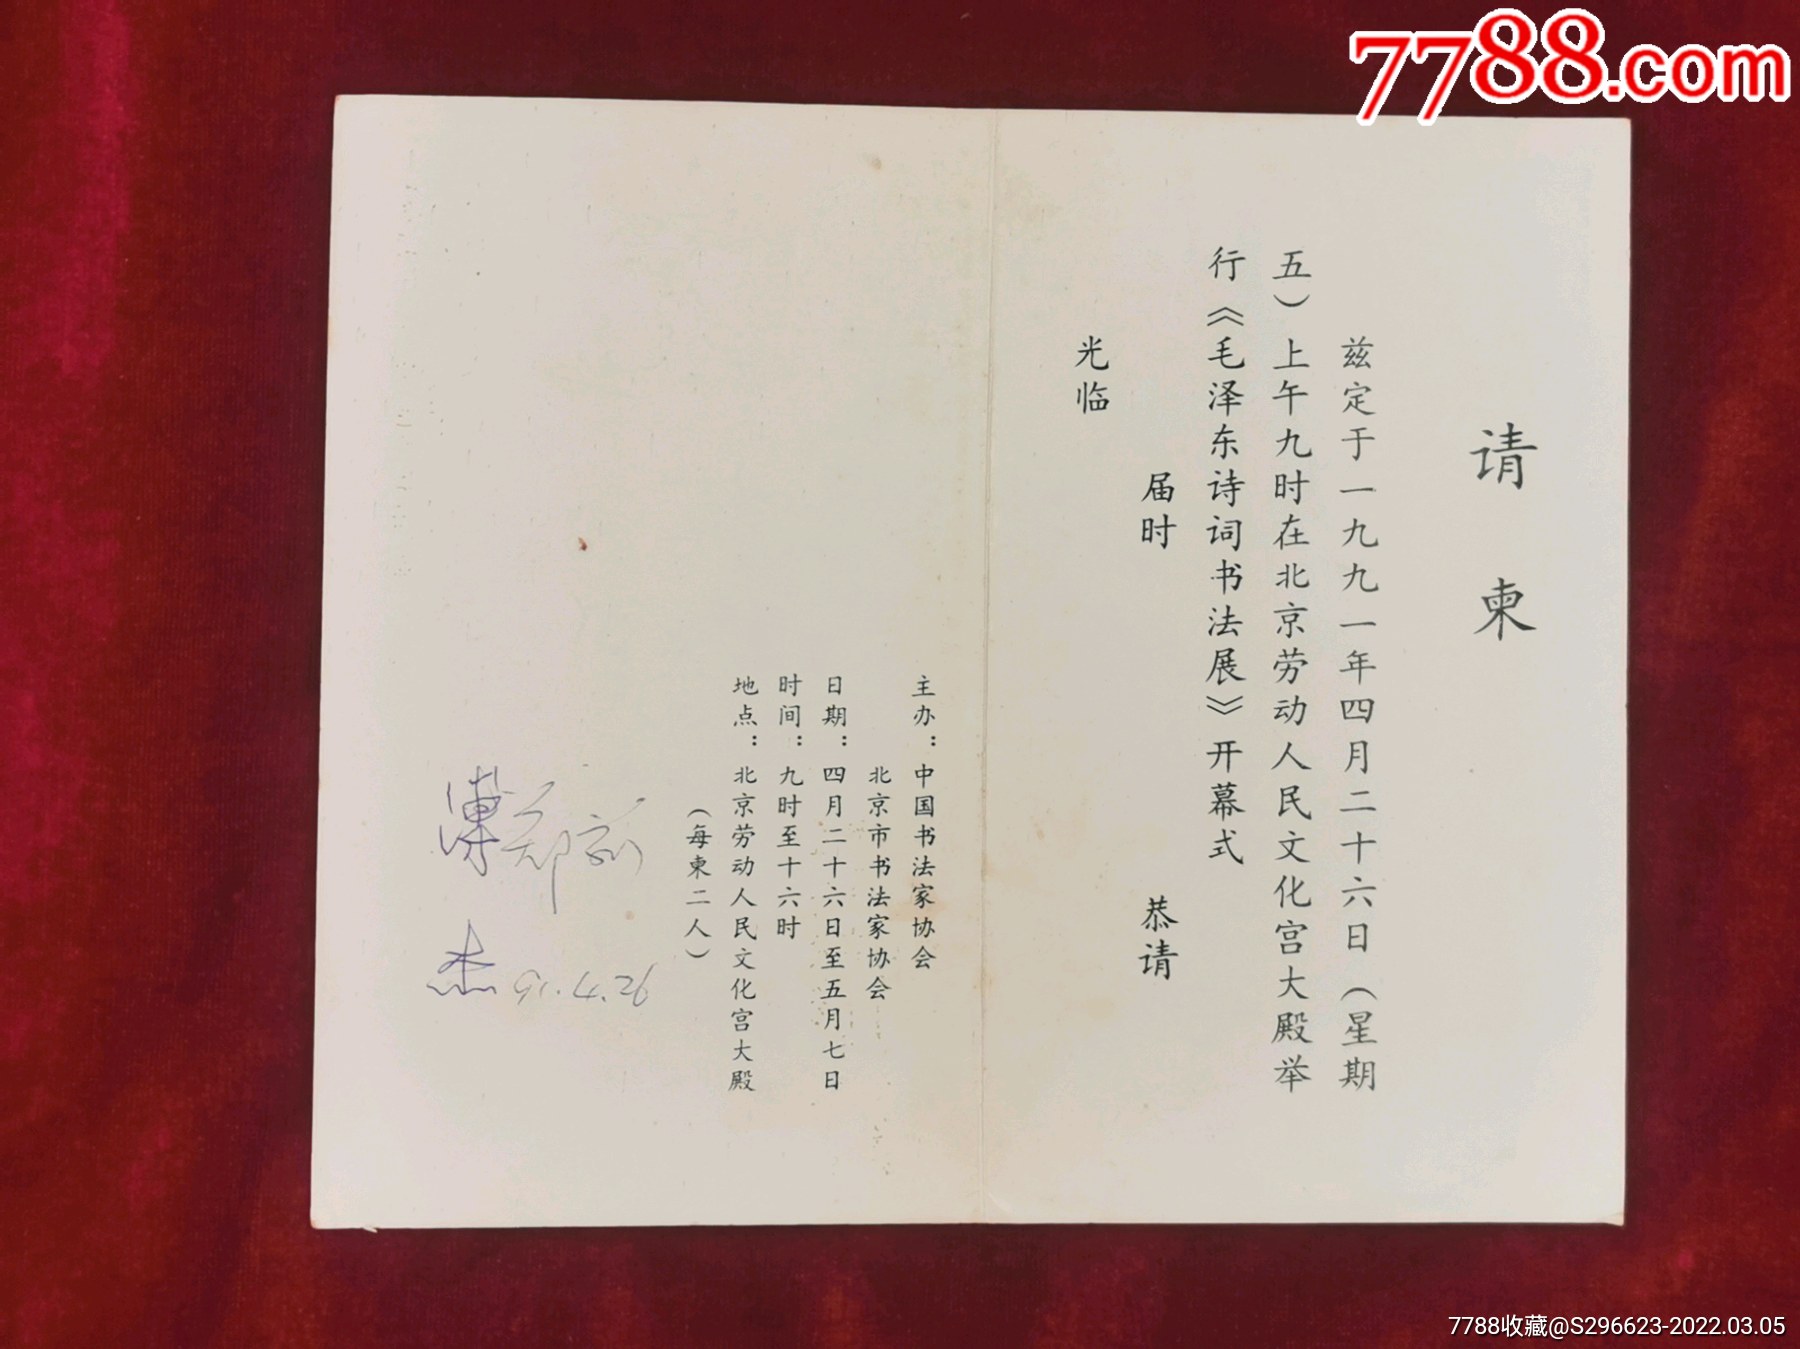 7788.com
请柬
兹定于一九九一年四月二十六日（星期
五）上午九时在北京劳动人民文化宫大殿举
行《毛泽东诗词书法展》开幕式
届时 恭请
光临
主办：中国书法家协会
北京市书法家协会
日期：四月二十六日至五月七日
时间：九时至十六时
地点：北京劳动人民文化宫大殿
（每柬二人）
91.4.26
7788收藏@S296623-2022.03.05